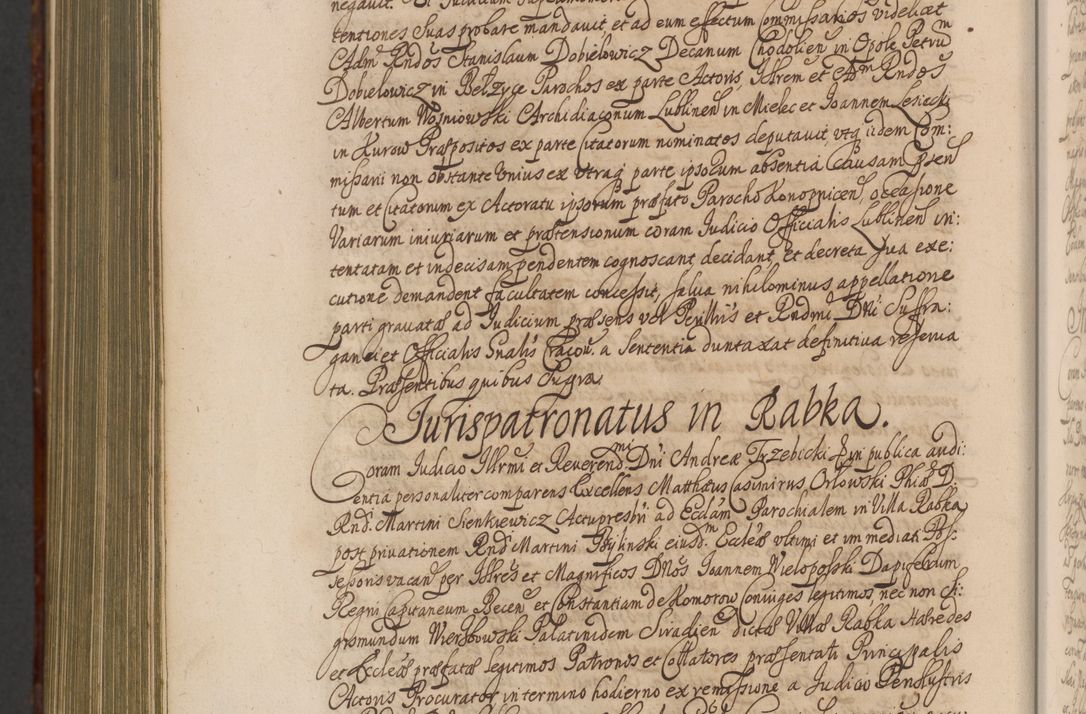 tentiones suas probare mandauit et ad eum effectum Commissarios videlicet
Adm Rndos Stanislaum Dobielowicz Decanum Chodolien in Opole Petrum
Dobielowicz in Bełzyce Parochos ex parte Actoris, Illrem et Adm Rndos
Albertum Wozniowski Archidiaconum Lublinen in Mielec et Ioannem Lesiecki
in Kurow Præpositos ex parte Citatorum nominatos deputauit, vtq iidem Com:
missarii non obstante vnius ex vtraq parte ipsorum absentia Causam
tum et Citatorum ex Actoratu ipsorum præfato Parocho Konopnicen, occasione
Variarum iniuriarum et prætensionum coram Iudicio Officialis Lublinen in:
tentatam et indecisam pendentem cognoscant, decidant, et decreta sua exe:
cutione demandent facultatem concessit, salua nihilominus appellatione
parti grauatæ ad Iudicium præsens vel Perillris et Rndmi Dni Suffra:
ganei et Officialis Gnalis Cracou. a sententia duntaxat definitiua reserua
ta. Præsentibus quibus supra
Iurispatronatus in Rabka.
Coram Iudicio Illrmi et Reverendmi Dni Andreæ Trzebicki Epi in publica audi:
entia personaliter comparens Excellens Matthæus Casimirus Orłowski Phiæ D.
Rndi Martini Sienkiewicz Actupresbri ad Ecclam Parochialem in Villa Rabka
post priuationem Rndi Martini eiusdm Eccleæ vltimi et immediati Pos:
sessoris vacan per Illres et Magnificos Dnos Ioannem Wielopolski Dapiferum
Regni Capitaneum Becen et Constantiam de Komorow Coniuges legitimos nec non Si:
gismundum Wierzbowski Palatinidem Siradien dictæ Villæ Rabka Hæredes
et Eccleæ præfatæ legitimos Patronos et Collatores præsentati Principalis
Actoris Procurator in termino hodierno ex remissione a Iudicio Perillustris